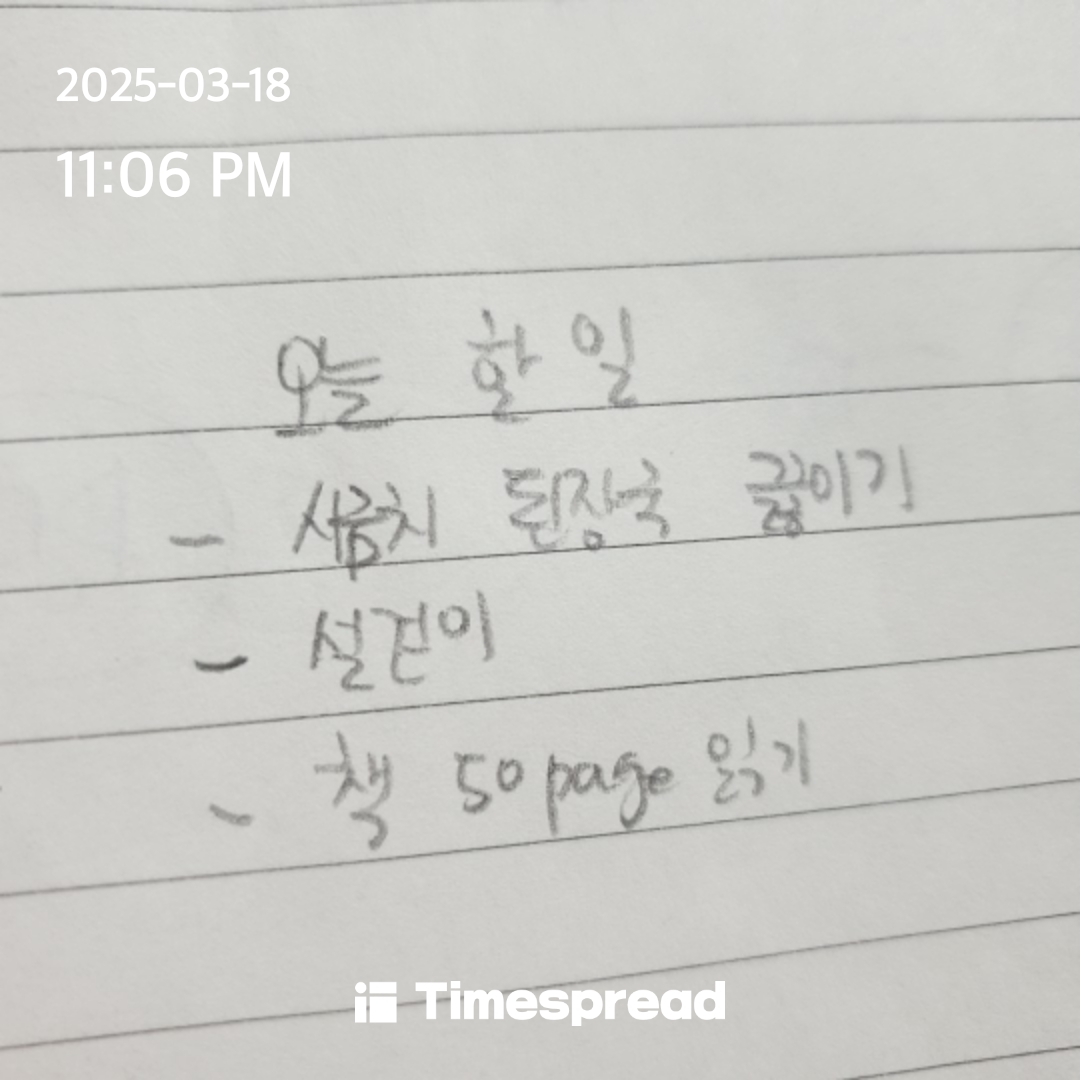 2025-03-18
11:06 PM
오늘 할 일
- 시금치 된장국 끓이기
- 설걷이
- 책 50page 읽기
Timespread